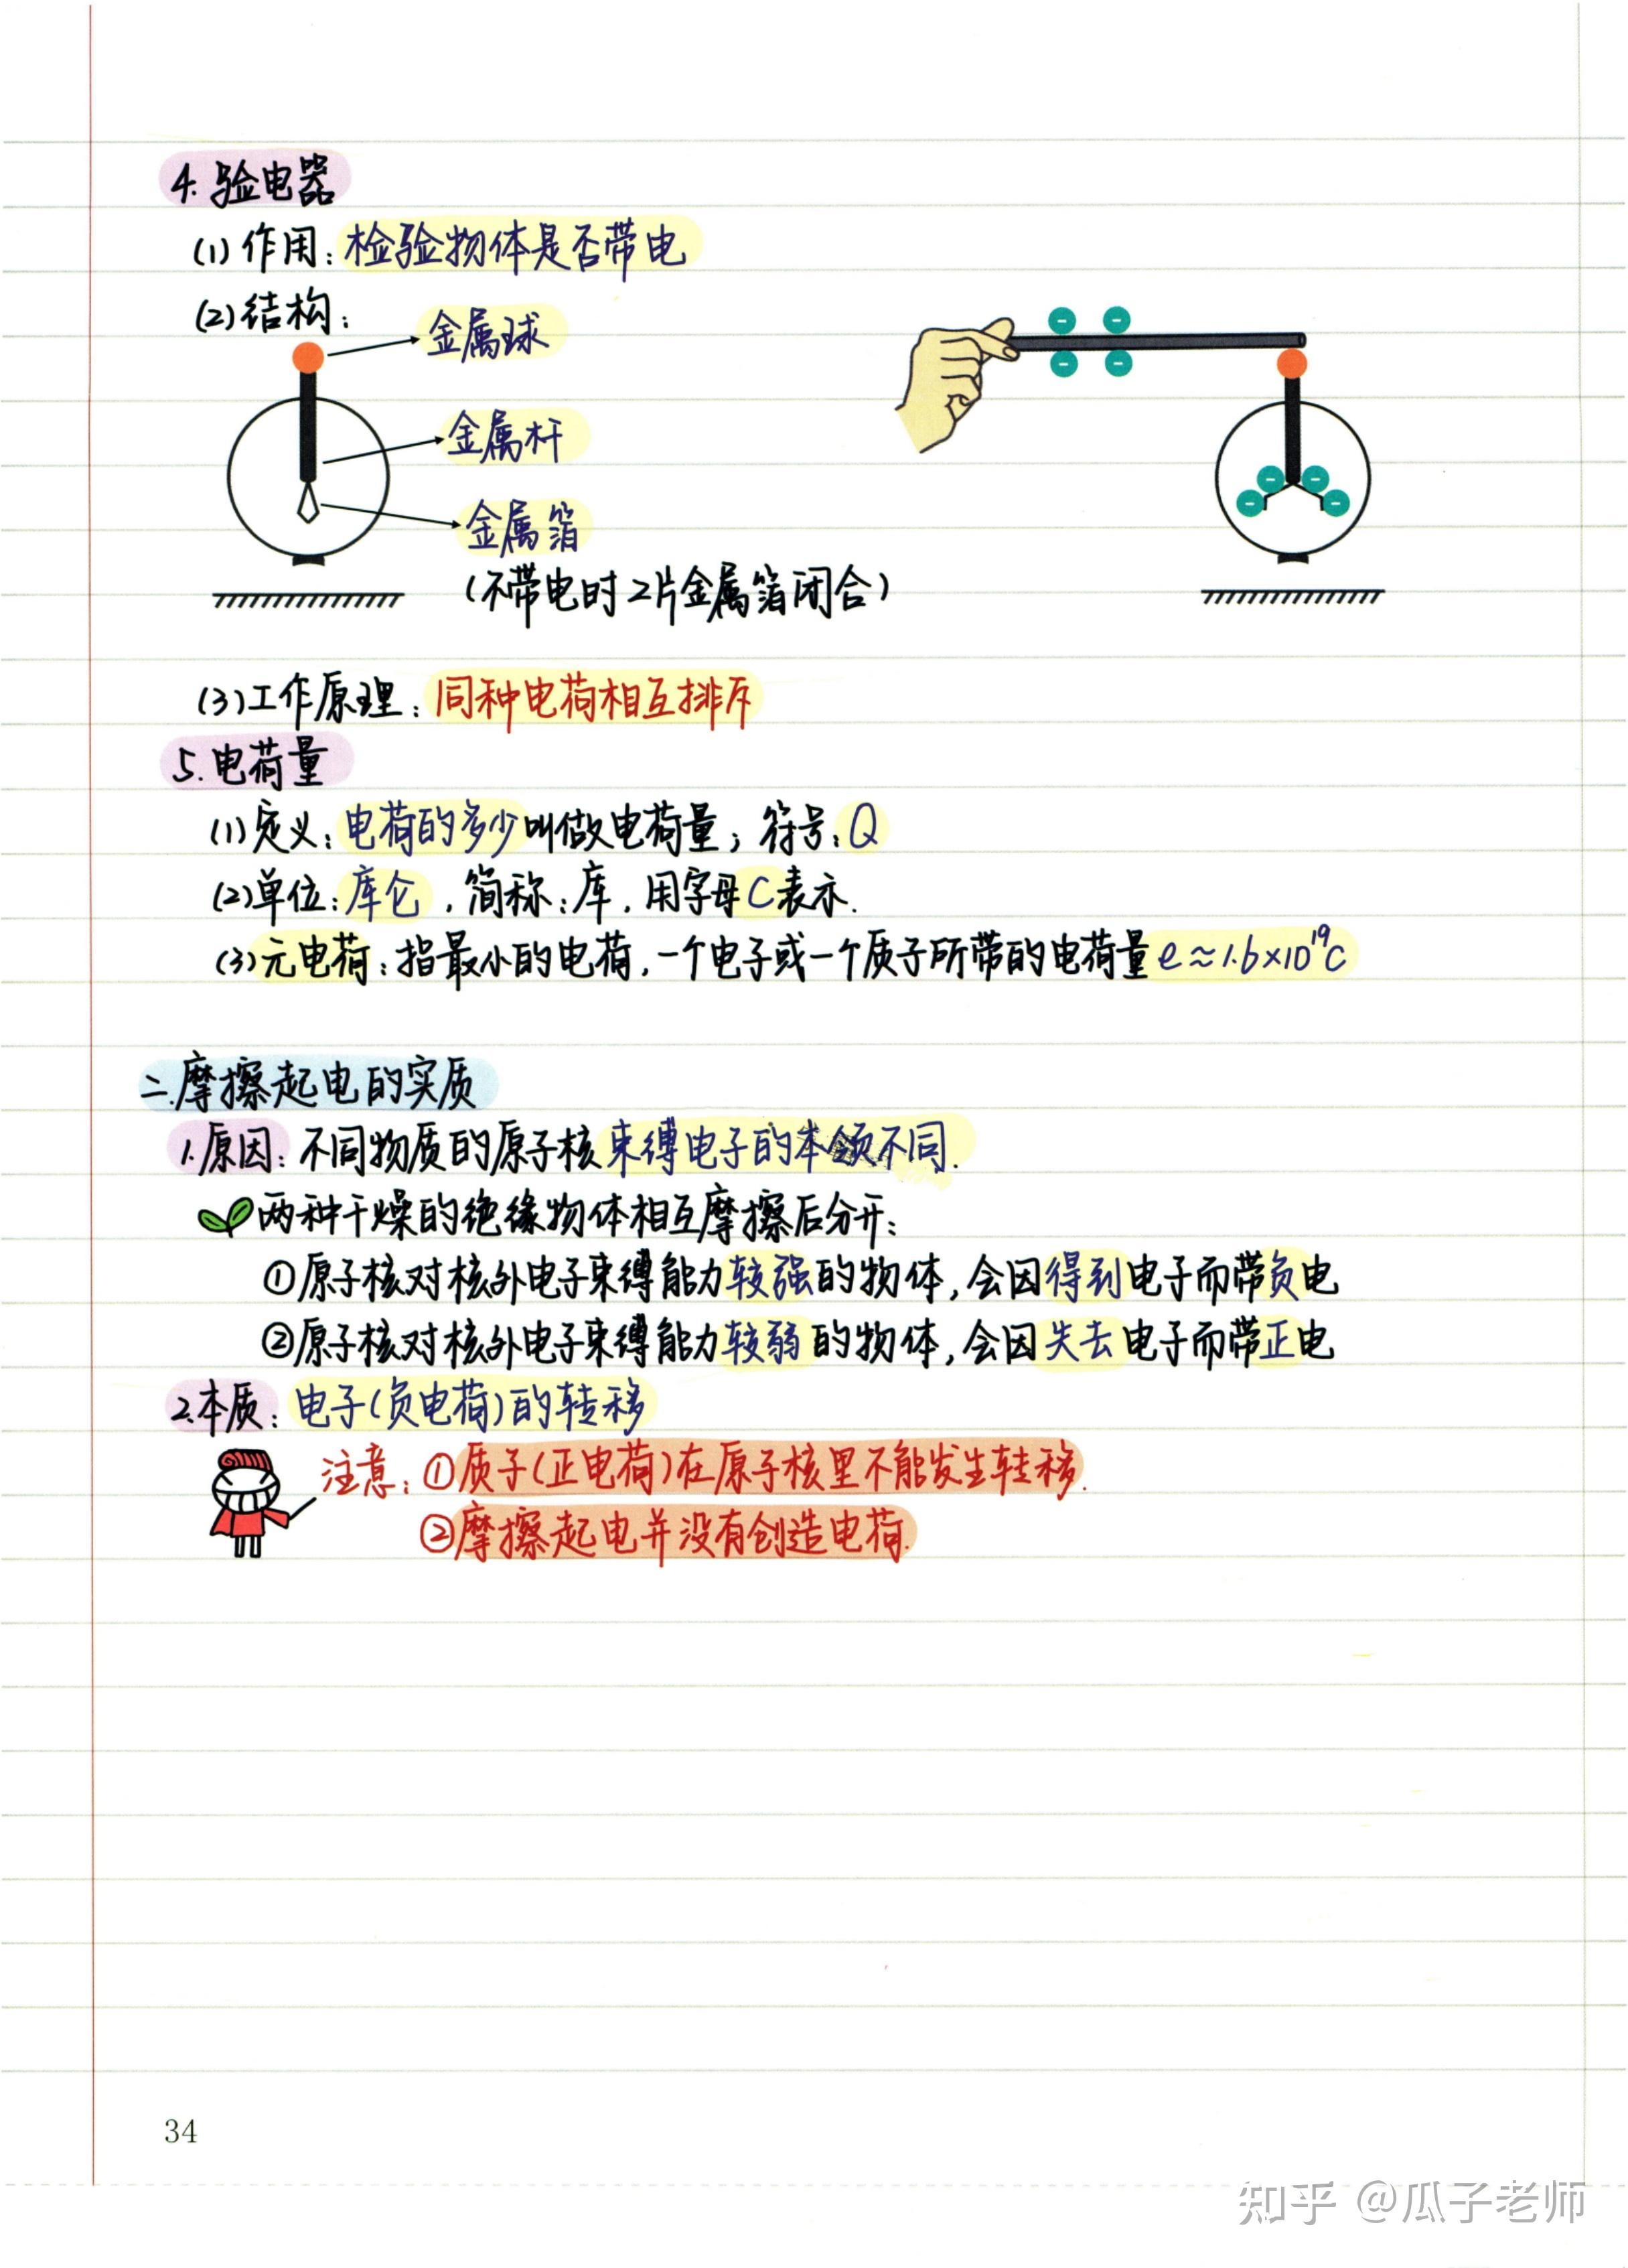 4. 验电器
(1) 作用: 检验物体是否带电
(2) 结构:
金属球
金属杆
金属箔
(不带电时2片金属箔闭合)
(3) 工作原理: 同种电荷相互排斥
5. 电荷量
(1) 定义: 电荷的多少叫做电荷量; 符号: Q
(2) 单位: 库仑, 简称: 库, 用字母C表示.
(3) 元电荷: 指最小的电荷, 一个电子或一个质子所带的电荷量 e≈1.6×10¹⁹C
二. 摩擦起电的实质
1. 原因: 不同物质的原子核束缚电子的本领不同.
两种干燥的绝缘物体相互摩擦后分开:
①原子核对核外电子束缚能力较强的物体, 会因得到电子而带负电
②原子核对核外电子束缚能力较弱的物体, 会因失去电子而带正电
2. 本质: 电子(负电荷)的转移
注意: ①质子(正电荷)在原子核里不能发生转移.
②摩擦起电并没有创造电荷.
34
知乎 @瓜子老师